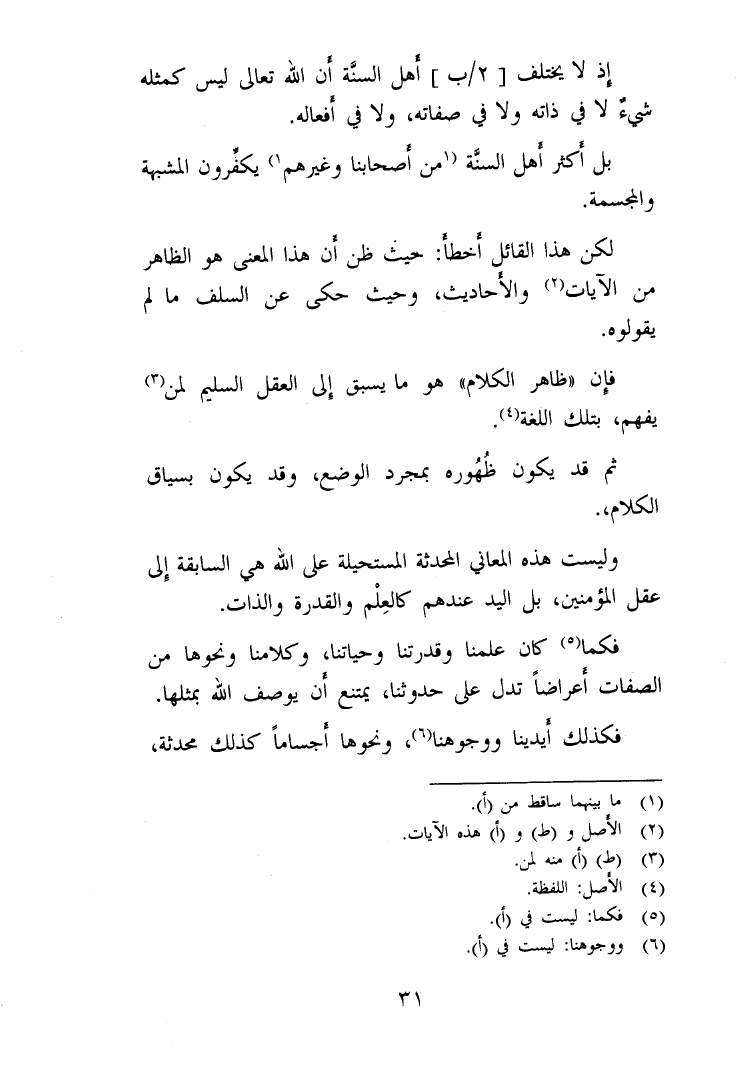 إِذ لا يختلف [ ٢/ب ] أَهل السنَّة أَن الله تعالى ليس كمثله
شيءٌ لا في ذاته ولا في صفاته، ولا في أَفعاله.
بل أَكثر أَهل السنَّة (١من أَصحابنا وغيرهم١) يكفِّرون المشبهة
والمجسمة.
لكن هذا القائل أَخطأَ: حيث ظن أَن هذا المعنى هو الظاهر
من الآيات(٢) والأَحاديث، وحيث حكى عن السلف ما لم
يقولوه.
فإِن «ظاهر الكلام» هو ما يسبق إِلى العقل السليم لمن(٣)
يفهم، بتلك اللغة(٤).
ثم قد يكون ظُهُوره بمجرد الوضع، وقد يكون بسياق
الكلام،.
وليست هذه المعاني المحدثة المستحيلة على الله هي السابقة إِلى
عقل المؤمنين، بل اليد عندهم كالعِلْم والقدرة والذات.
فكما(٥) كان علمنا وقدرتنا وحياتنا، وكلامنا ونحوها من
الصفات أَعراضاً تدل على حدوثنا، يمتنع أَن يوصف الله بمثلها.
فكذلك أَيدينا ووجوهنا(٦)، ونحوها أَجساماً كذلك محدثة،
(١) ما بينهما ساقط من (أ).
(٢) الأَصل و (ط) و (أ) هذه الآيات.
(٣) (ط) (أ) منه لمن.
(٤) الأَصل: اللفظة.
(٥) فكما: ليست في (أ).
(٦) ووجوهنا: ليست في (أ).
٣١